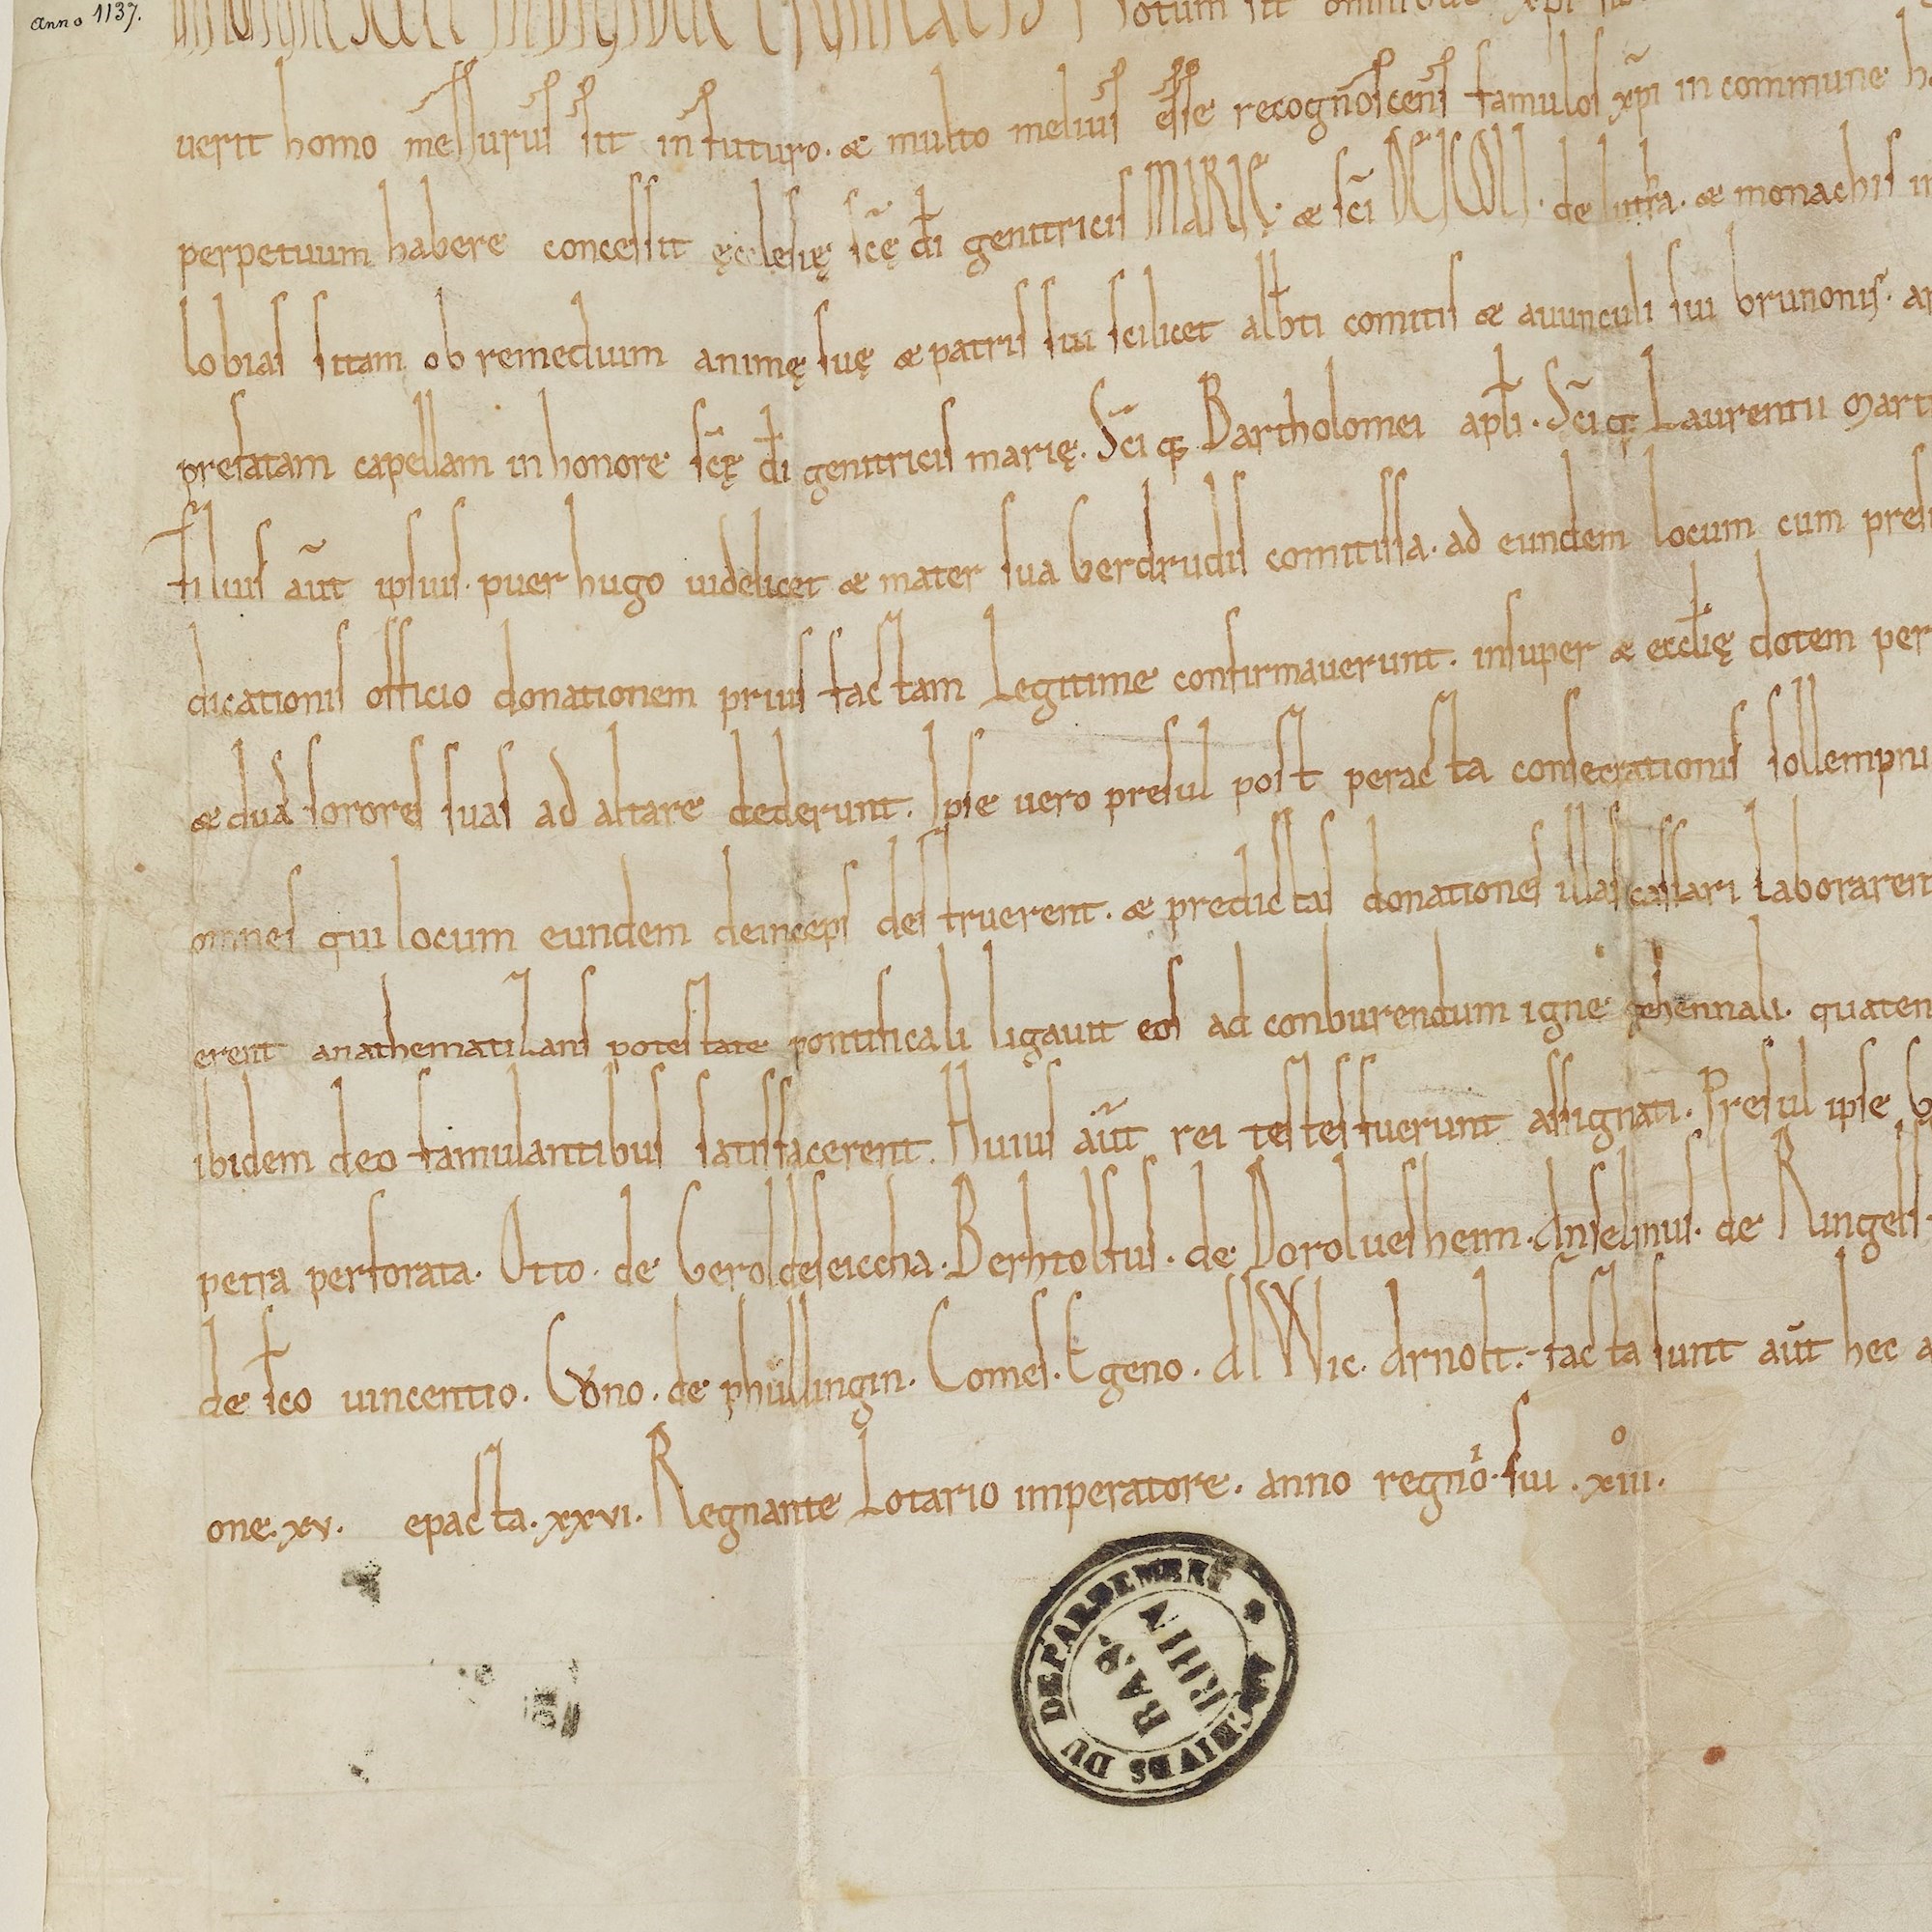 anno 1137.
otum sit
uerit homo messurus sit in futuro. & multo melius esse recognoscens famulos xp̃i in commune
perpetuum habere concessit ęcclesię scę̃ dĩ genitricis MARIĘ. & scĩ DEICOLI. de lutra. & monachis
lobias sitam ob remedium animę suę & patris sui scilicet alb̃ti comitis & auunculi sui brunonis.
prefatam capellam in honore scę̃ dĩ genitricis marię. Scĩ q; Bartholomei apl̃i. Scĩ q; Laurentii mart
filius aũt ipsius. puer hugo uidelicet & mater sua Gerdrudis comitissa. ad eundem locum cum
dicationis officio donationem prius factam Legitime confirmauerunt. insuper & eccl̃ię dotem per
& duas sorores suas ad altare dederunt. Ipse uero presul post peracta consecrationis sollempni
omnes qui locum eundem deinceps destruerent. & predictas donationes illas cassari laborarent
erent anathematizans potestate pontificali ligauit eos ad comburendum igne gehennali. quaten
ibidem deo famulantibus satisfacerent. Huius aũt rei testes fuerunt assignati. Presul ipse
petra perforata. Otto. de Geroldeseiccha. Berhtolfus. de Doroluesheim. Anselmus. de Ringels
de sco uincentio. Cono. de phullingin. Comes. Egeno. AlWic. Arnolt. facta sunt aũt hec
one. xv. epacta. xxvi. Regnante Lotario imperatore. anno regni sui. xiii.
ARCHIVES DU DÉPARTEMENT
BAS
RHIN